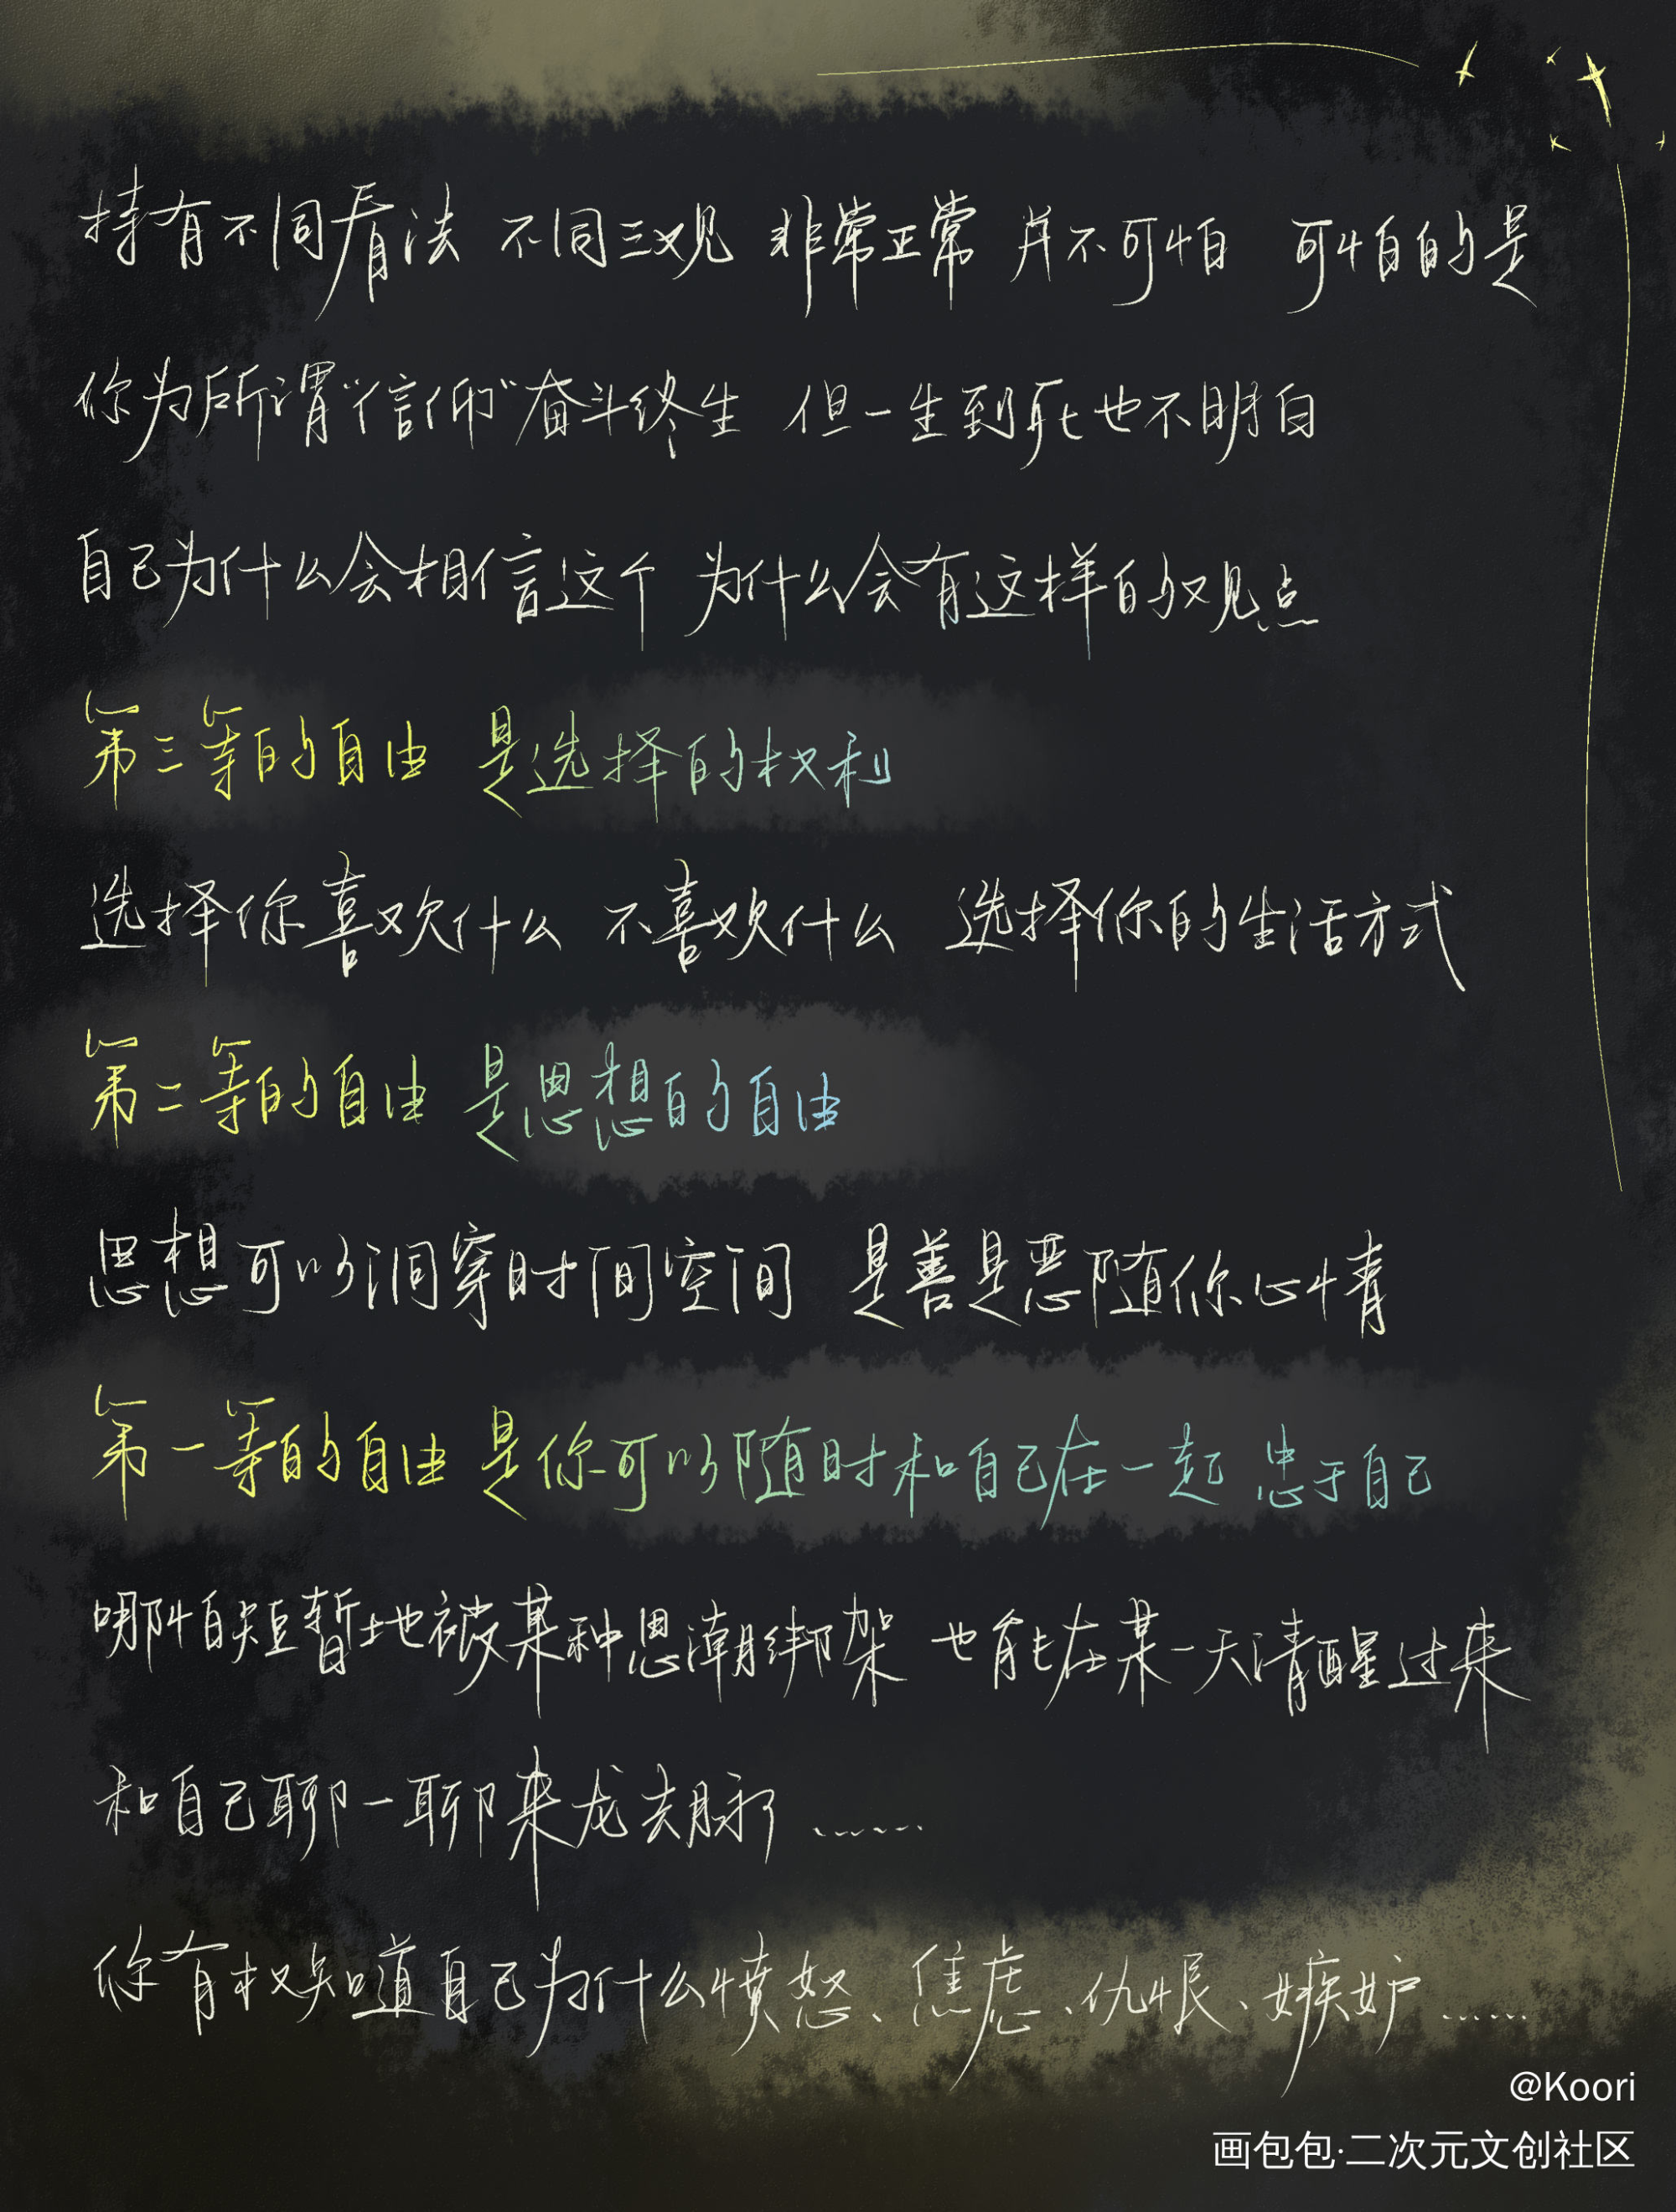 持有不同看法 不同三观 非常正常 并不可怕 可怕的是
你为所谓“信仰”奋斗终生 但一生到死也不明白
自己为什么会相信这个 为什么会有这样的观点
第三等的自由 是选择的权利
选择你喜欢什么 不喜欢什么 选择你的生活方式
第二等的自由 是思想的自由
思想可以洞穿时间空间 是善是恶随你心情
第一等的自由 是你可以随时和自己在一起 忠于自己
哪怕短暂地被某种思潮绑架 也能在某一天清醒过来
和自己聊一聊来龙去脉……
你有权知道自己为什么愤怒、焦虑、仇恨、嫉妒……
@Koori
画包包·二次元文创社区